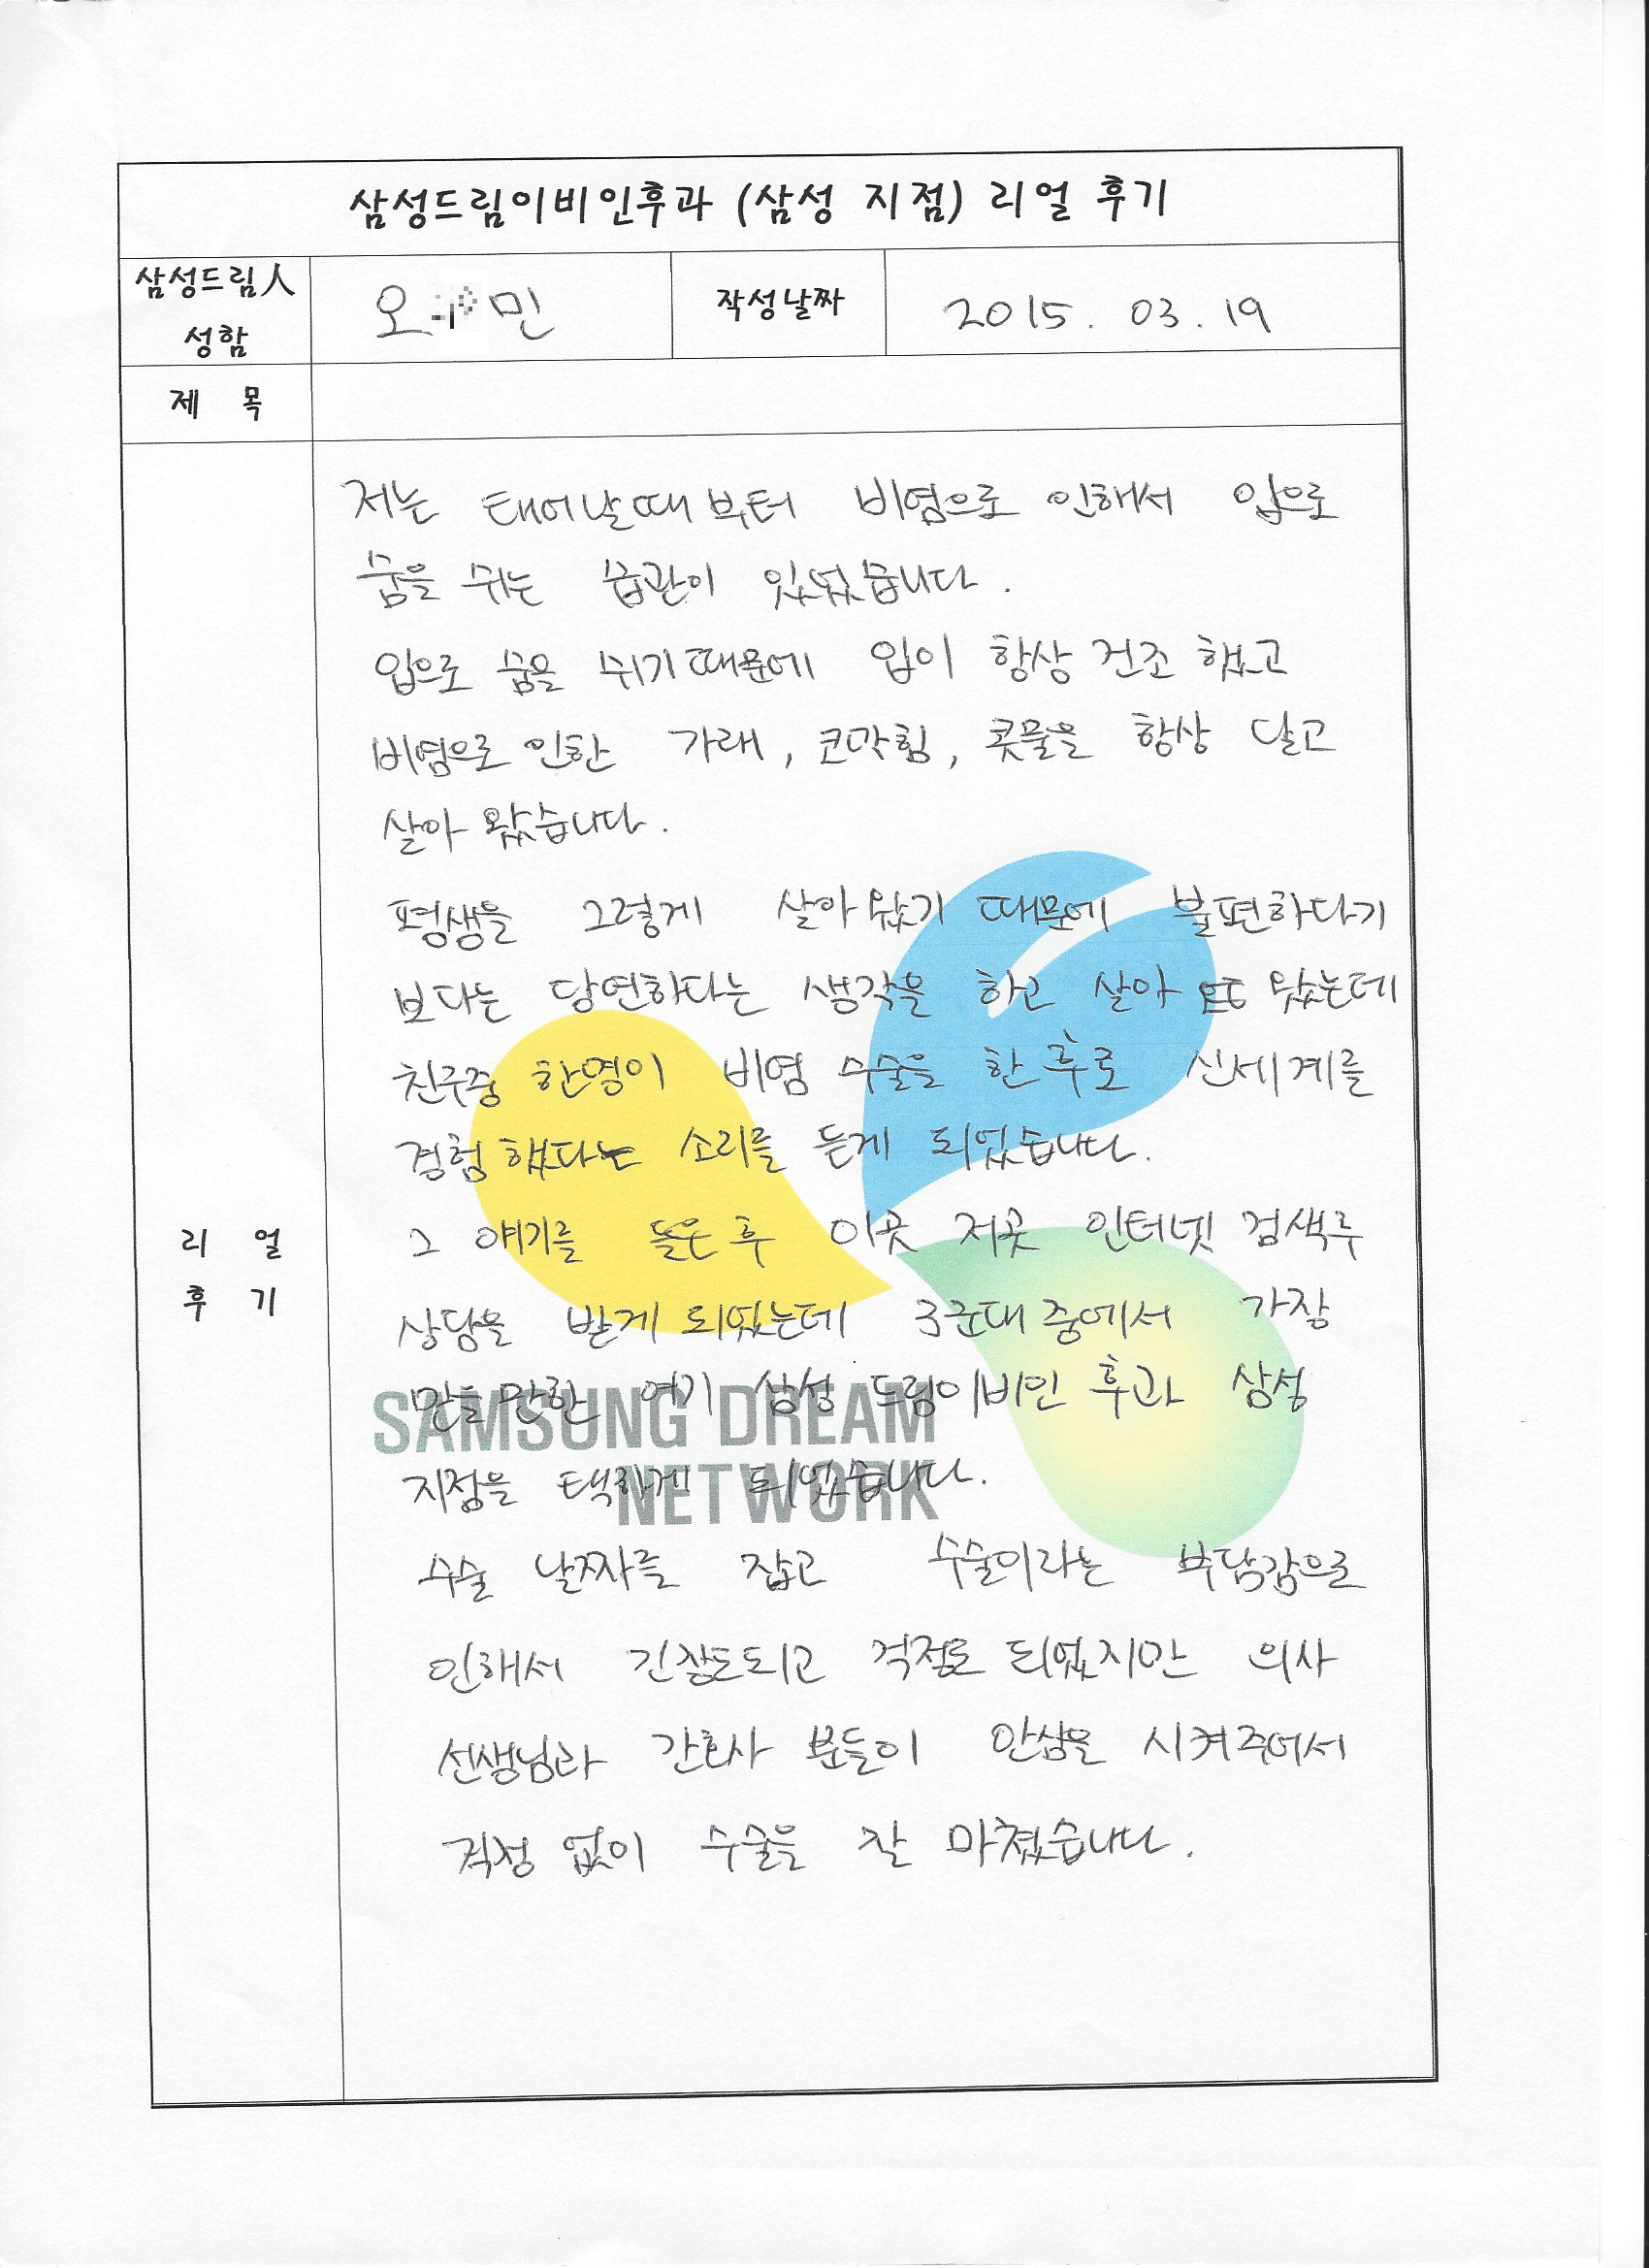 삼성드림이비인후과 (삼성 지점) 리얼 후기
삼성드림人
성함
오 민
작성날짜
2015. 03. 19
제 목
저는 태어날때부터 비염으로 인해서 입으로
숨을 쉬는 습관이 있었습니다.
입으로 숨을 쉬기때문에 입이 항상 건조 했고
비염으로 인한 가래, 코막힘, 콧물을 항상 달고
살아 왔습니다.
평생을 그렇게 살아왔기 때문에 불편하다기
보다는 당연하다는 생각을 하고 살아 왔는데
친구중 한명이 비염 수술을 한 후로 신세계를
경험 했다는 소리를 듣게 되었습니다.
그 얘기를 들은 후 이곳 저곳 인터넷 검색후
상담을 받게 되었는데 3군대 중에서 가장
믿을만한 여기 삼성 드림이비인 후과 삼성
지점을 택하게 되었습니다.
수술 날짜를 잡고 수술이라는 부담감으로
인해서 긴장도되고 걱정도 되었지만 의사
선생님과 간호사 분들이 안심을 시켜주어서
걱정 없이 수술을 잘 마쳤습니다.
리 얼
후 기
SAMSUNG DREAM
NETWORK